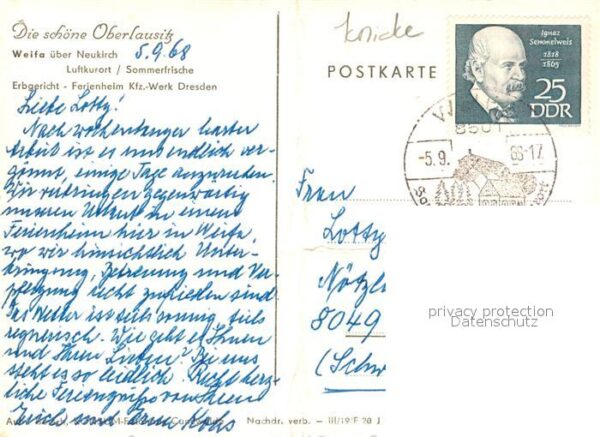 Die schöne Oberlausitz
Weifa über Neukirch 5.9.68
Luftkurort / Sommerfrische
Erbgericht - Ferienheim Kfz.-Werk Dresden
Liebe Lotty!
Nach wochenlanger harter
Arbeit ist es uns endlich ver-
gönnt, einige Tage auszuruhen.
Wir verbringen gegenwärtig
unseren Urlaub in einem
Ferienheim hier in Weifa,
wo wir hinsichtlich Unter-
bringung, Betreuung und Ver-
pflegung recht zufrieden sind.
Das Wetter ist teils
regnerisch. Wie geht es Ihnen
und Ihren Lieben? Bei uns
steht es so leidlich. Recht herz-
liche Feriengrüße von Ihren
Erich und
Nachdr. verb. – III/19/F 20 J
knicke
POSTKARTE
Ignaz
Semmelweis
1818
1865
25
DDR
8501
-5.9. 68-17
Frau
Lotty
Nötzl
8049
(Schw
privacy protection
Datenschutz